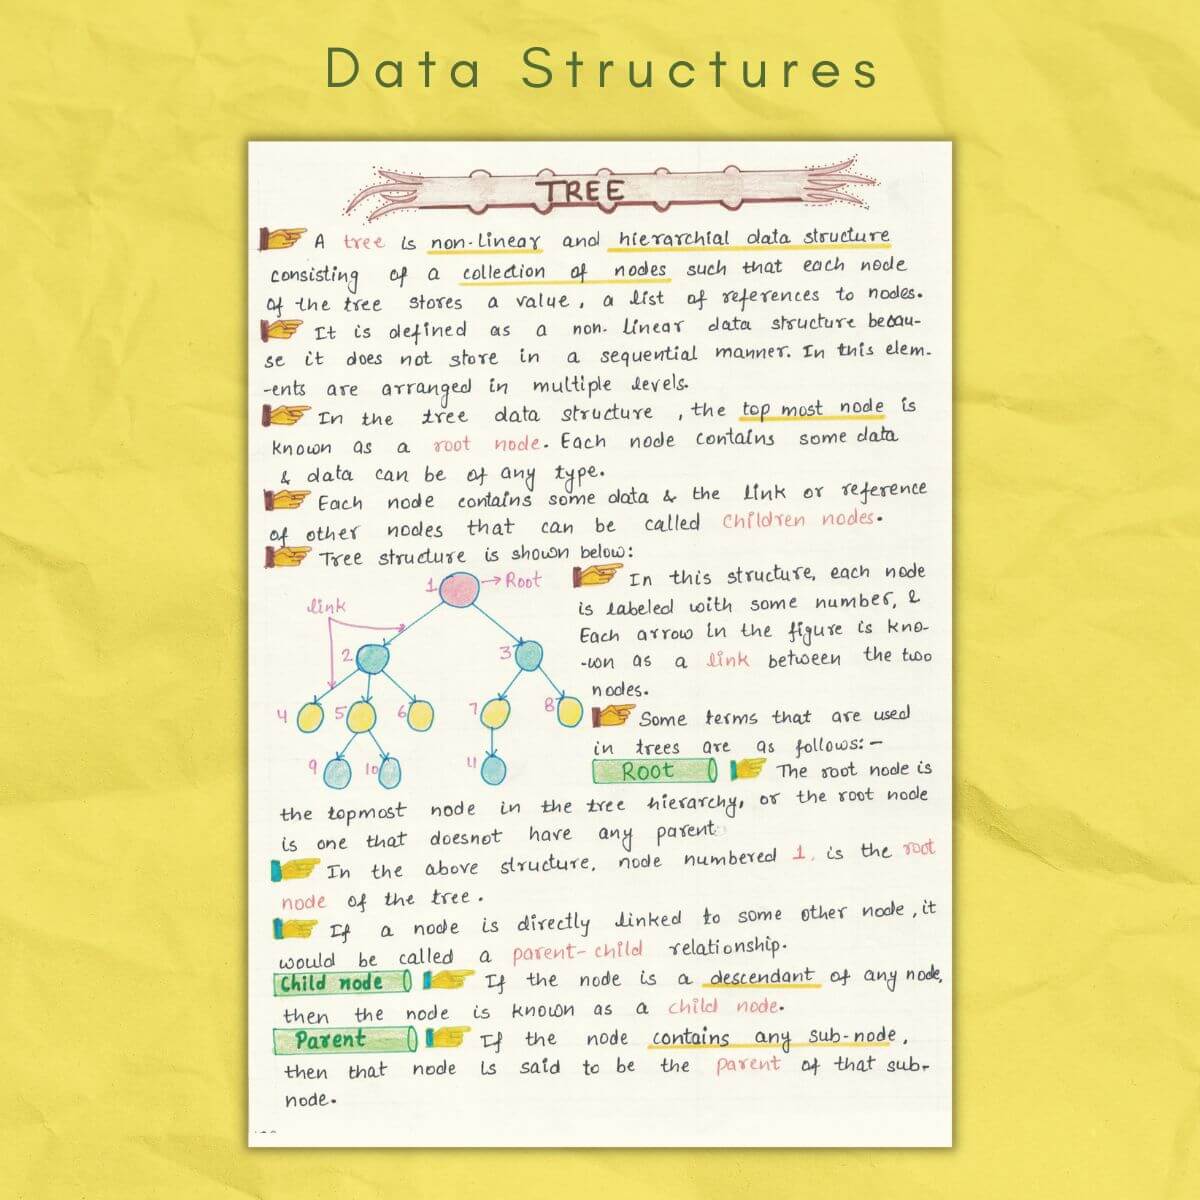 Data Structures
TREE
A tree is non-linear and hierarchial data structure
consisting of a collection of nodes such that each node
of the tree stores a value, a list of references to nodes.
It is defined as a non-linear data structure becau-
se it does not store in a sequential manner. In this elem-
-ents are arranged in multiple levels.
In the tree data structure, the top most node is
known as a root node. Each node contains some data
& data can be of any type.
Each node contains some data & the link or reference
of other nodes that can be called Children nodes.
Tree structure is shown below:
1 → Root
link
2
3
4
5
6
7
8
9
10
11
In this structure, each node
is labeled with some number, &
Each arrow in the figure is kno-
-wn as a link between the two
nodes.
Some terms that are used
in trees are as follows:-
Root The root node is
the topmost node in the tree hierarchy, or the root node
is one that doesnot have any parent
In the above structure, node numbered 1, is the root
node of the tree.
If a node is directly linked to some other node, it
would be called a parent-child relationship.
Child node If the node is a descendant of any node,
then the node is known as a child node.
Parent If the node contains any sub-node,
then that node is said to be the parent of that sub-
node.